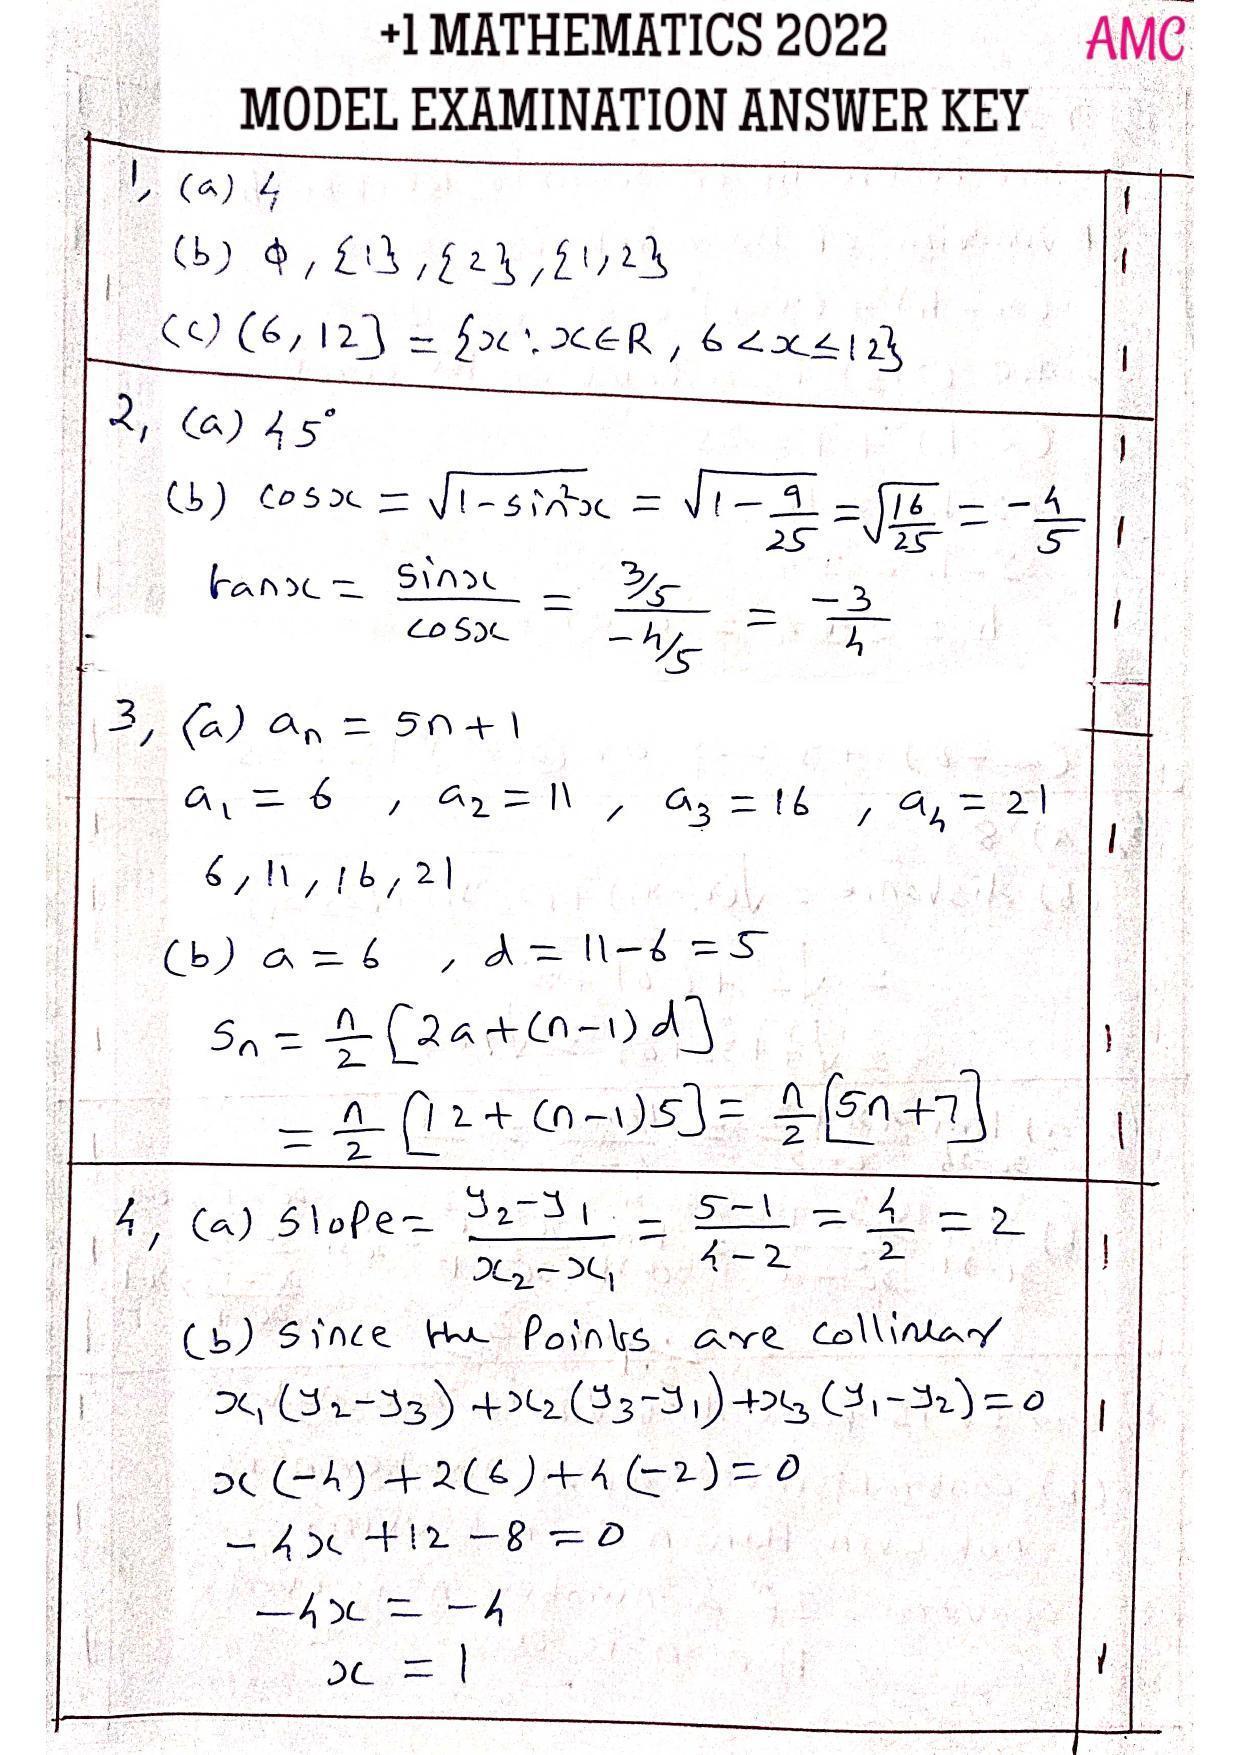 +1 MATHEMATICS 2022 AMC
MODEL EXAMINATION ANSWER KEY
1, (a) 4 1
(b) Φ, {1}, {2}, {1,2} 1
(c) (6, 12] = {x : x∈R, 6 < x ≤ 12} 1
2, (a) 45° 1
(b) cosx = √(1-sin²x) = √(1-9/25) = √(16/25) = -4/5 1
tanx = sinx/cosx = (3/5)/(-4/5) = -3/4 1
3, (a) aₙ = 5n+1
a₁ = 6 , a₂ = 11 , a₃ = 16 , a₄ = 21 1
6, 11, 16, 21
(b) a = 6 , d = 11-6 = 5
Sₙ = n/2 [2a+(n-1)d] 1
= n/2 [12+(n-1)5] = n/2 [5n+7] 1
4, (a) Slope = (y₂-y₁)/(x₂-x₁) = (5-1)/(4-2) = 4/2 = 2 1
(b) Since the Points are collinear
x₁(y₂-y₃) + x₂(y₃-y₁) + x₃(y₁-y₂) = 0 1
x(-4) + 2(6) + 4(-2) = 0
-4x + 12 - 8 = 0
-4x = -4
x = 1 1